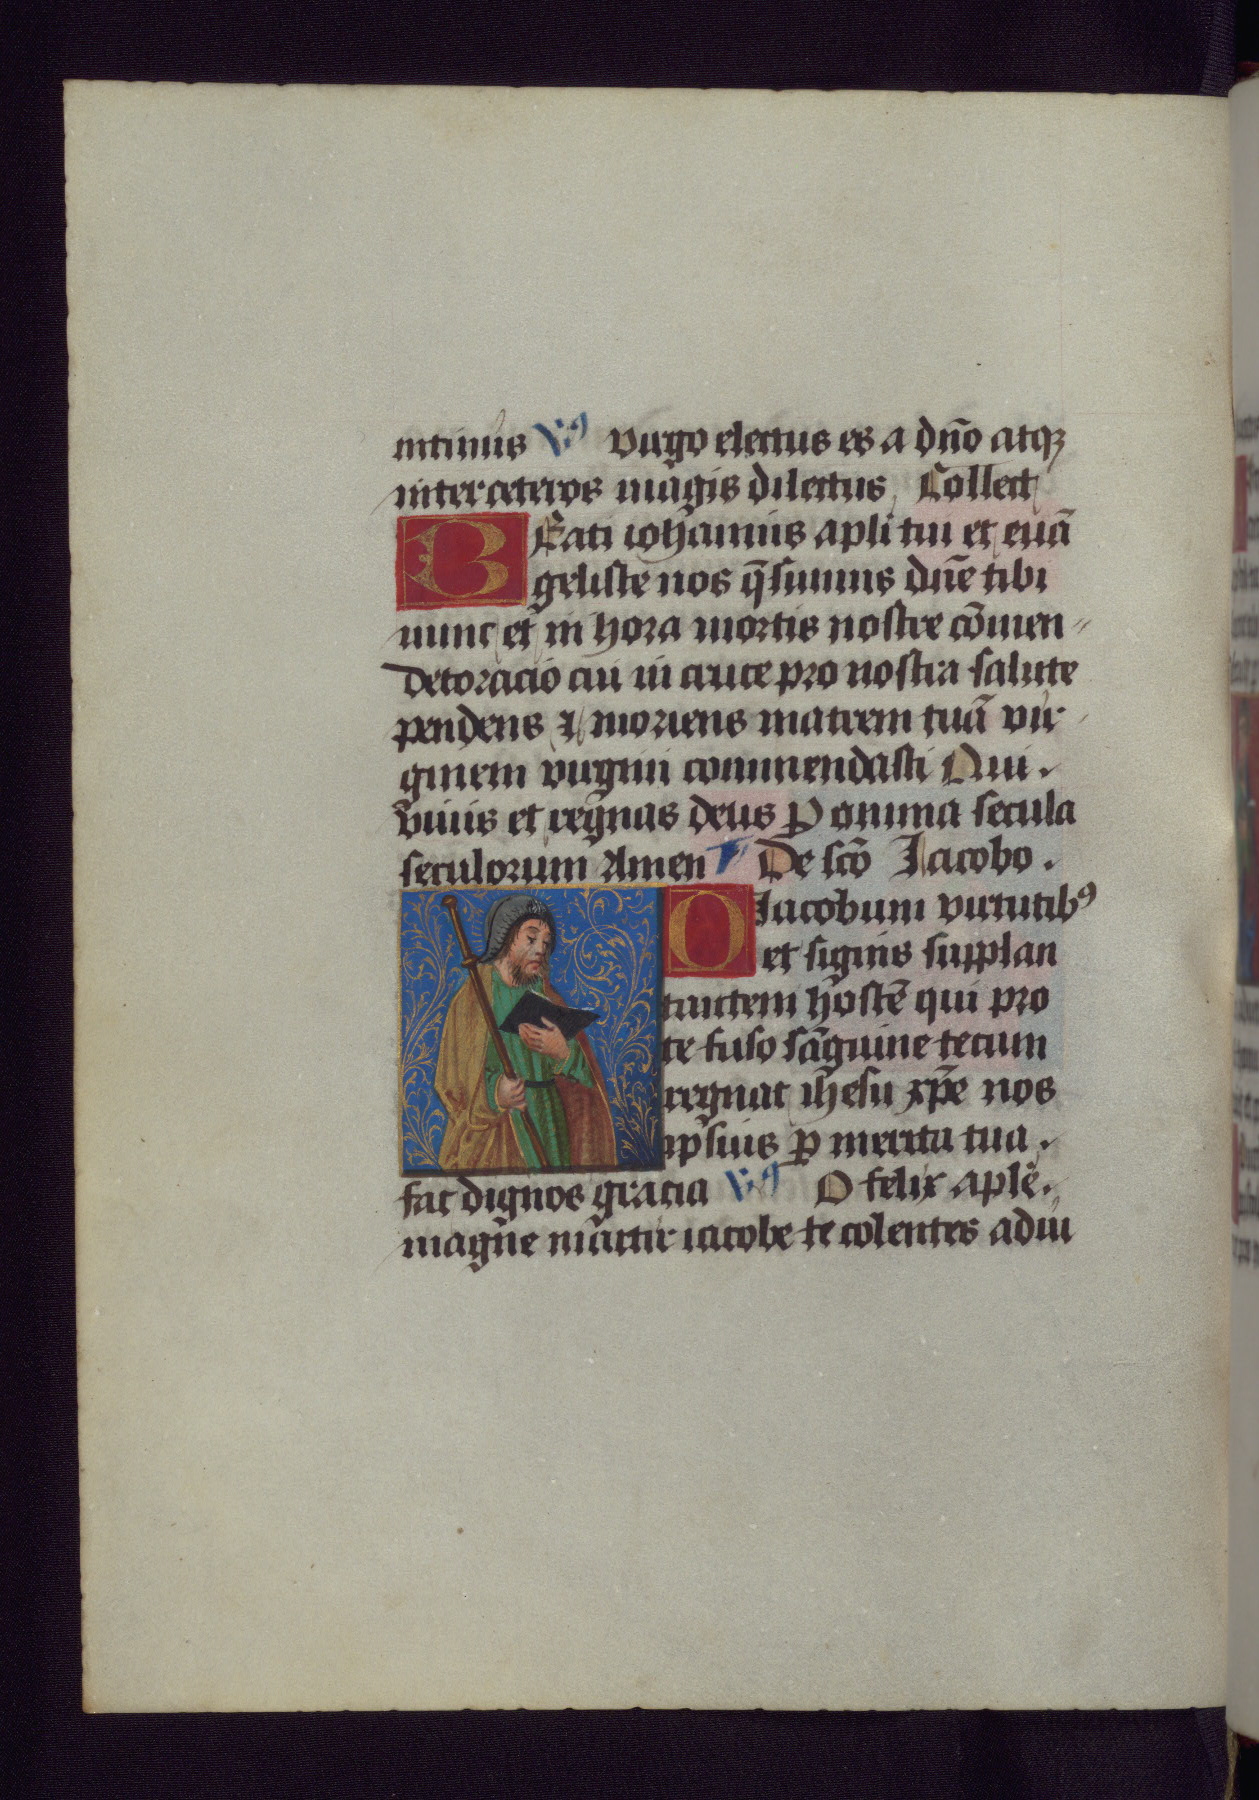 intimus V⁹ virgo electus es a dn̄o atqꝫ
inter ceteros magis dilectus Collect
BEati iohannis apli tui et euā
geliste nos q̄sumus dn̄e tibi
nunc et in hora mortis nostre cōmen-
det oracio cui in cruce pro nostra salute
pendens ⁊ moriens matrem tuā vir-
ginem virgini commendasti Qui.
viuis et regnas deus ꝑ omnia secula
seculorum Amen De scō Jacobo.
O Jacobum virtutib⁹
et signis supplan
tantem hostē qui pro
te fuso sāguine tecum
regnat ihesu xp̄e nos
ipsius ꝑ merita tua.
fac dignos gracia V⁹ O felix aplē.
magne martir iacobe te colentes adiu